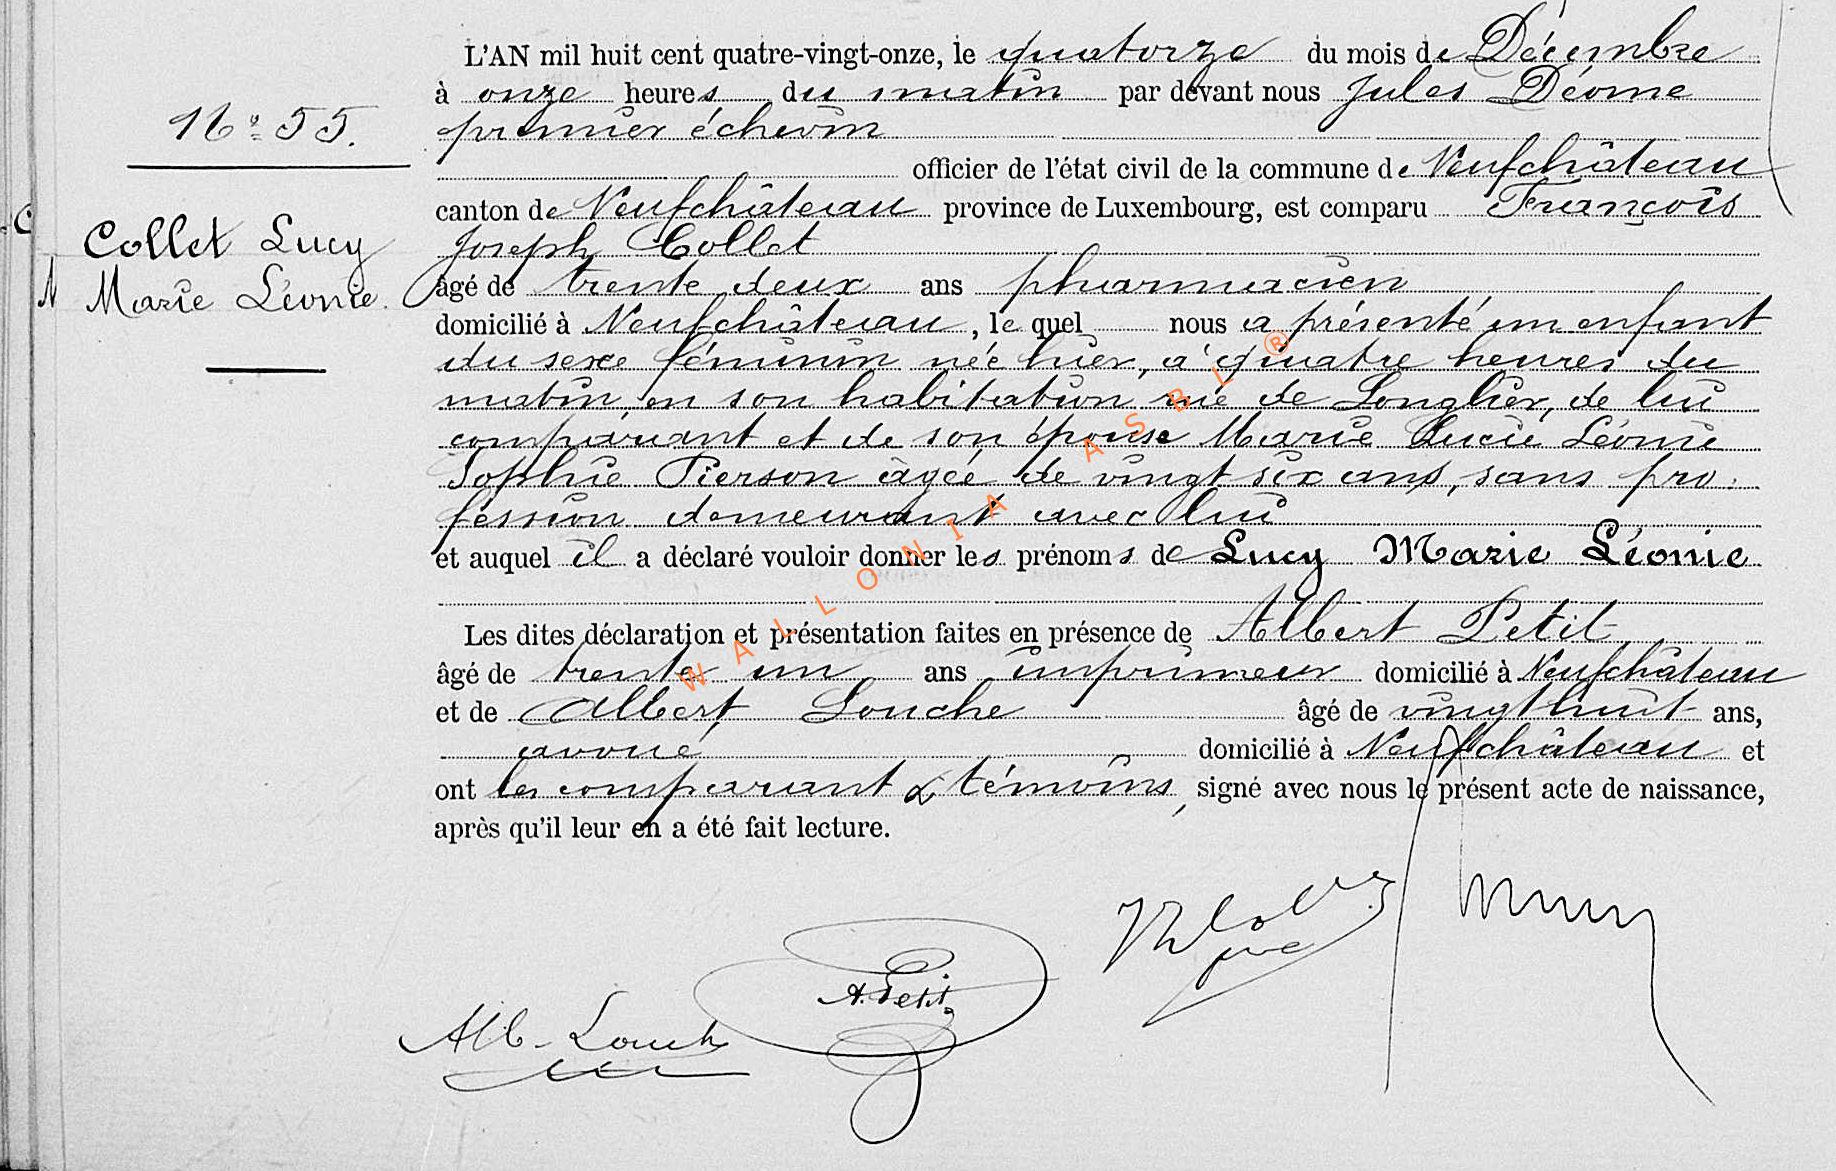 L'AN mil huit cent quatre-vingt-onze, le quatorze du mois de Décembre
à onze heures du matin par devant nous Jules Déome
premier échevin
officier de l'état civil de la commune de Neufchâteau
canton de Neufchâteau province de Luxembourg, est comparu François
Joseph Collet
âgé de trente deux ans pharmacien
domicilié à Neufchâteau, le quel nous a présenté un enfant
du sexe féminin née hier, à quatre heures du
matin, en son habitation rue de Longlier, de lui
comparant et de son épouse Marie Lucie Léonie
Sophie Pierson âgée de vingt six ans, sans pro
fession demeurant avec lui
et auquel il a déclaré vouloir donner les prénoms de Lucy Marie Léonie
Les dites déclaration et présentation faites en présence de Albert Petit
âgé de trente un ans imprimeur domicilié à Neufchâteau
et de Albert Louche âgé de vingt huit ans,
avoué domicilié à Neufchâteau et
ont les comparant & témoins, signé avec nous le présent acte de naissance,
après qu'il leur en a été fait lecture.
No 55.
Collet Lucy
Marie Léonie.
A. Petit
Alb. Louche
WALLONIA ASBL ®